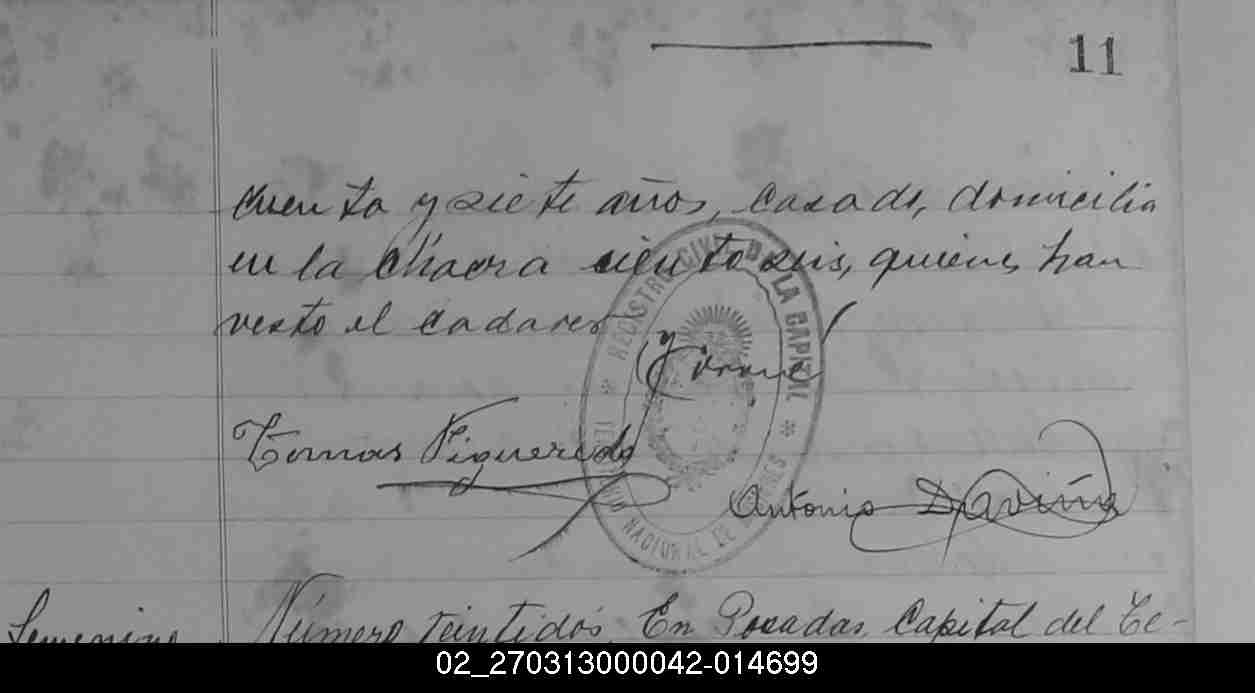 11
cuenta y siete años, casado, domicilia
en la Chacra ciento seis, quienes han
visto el cadaver
REGISTRO CIVIL DE LA CAPITAL
TERRITORIO NACIONAL DE MISIONES
Tomas Figueredo
Antonio Daviña
Número veintidós. En Posadas, Capital del Te-
02_270313000042-014699